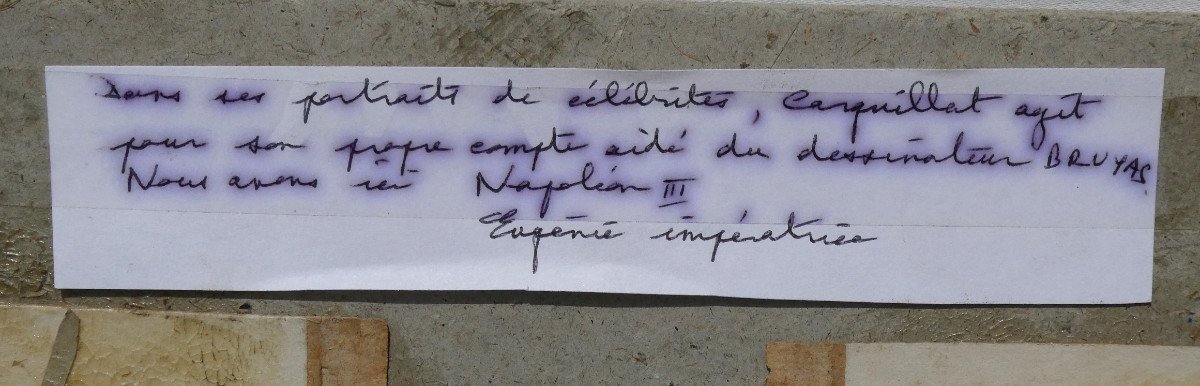 Dans ses portraits de célébrités, Carquillat agit
pour son propre compte aidé du dessinateur BRUYAS.
Nous avons ici Napoléon III
Eugénie impératrice